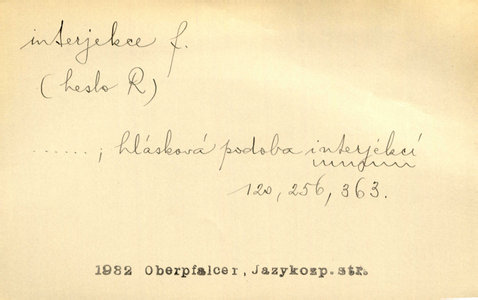 interjekce f.
(heslo R)
......; hlásková podoba interjekcí
120, 256, 363.
1932 Oberpfalcer, Jazykozp. str.